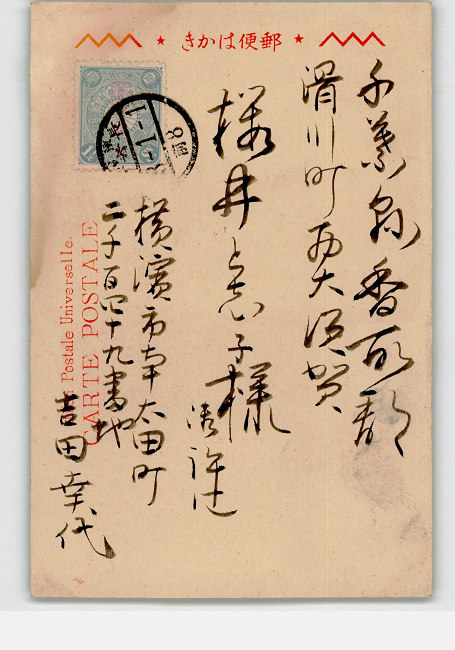 郵便はかき
千葉縣香取郡
滑川町西大須賀
櫻井と志子様
横濱市南太田町
二千百四十九番地
吉田幸代
Postale Universelle.
CARTE POSTALE